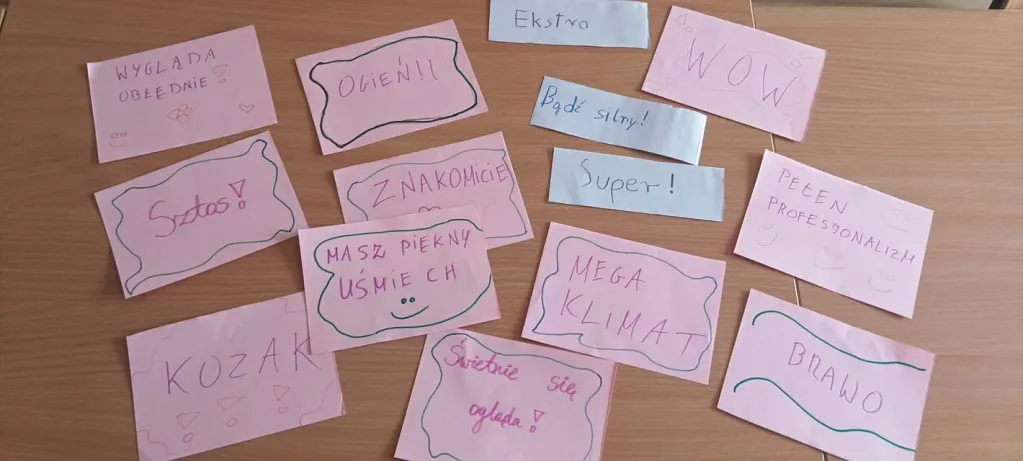 WYGLĄDA
OBŁĘDNIE!
OGIEŃ!!
Ekstra
WOW
Bądź silny!
Super!
Sztos!
ZNAKOMICIE
PEŁEN
PROFESJONALIZM
MASZ PIĘKNY
UŚMIECH
MEGA
KLIMAT
KOZAK
!!!
Świetnie się
ogląda!
BRAWO